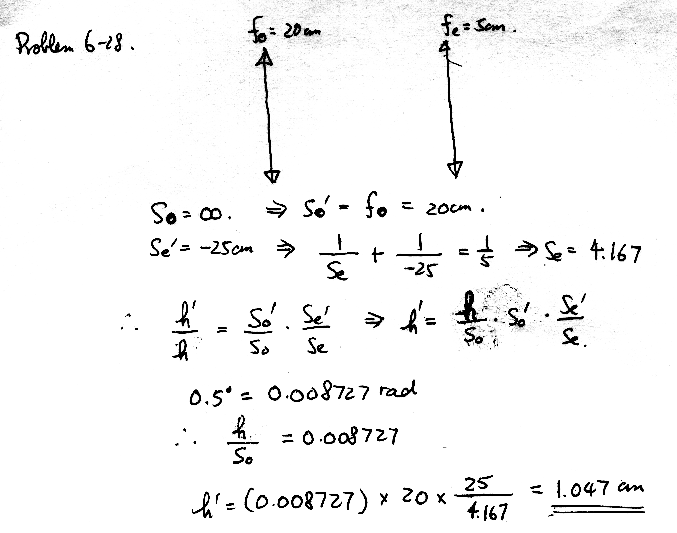 Problem 6-28.
fo = 20cm
fe = 5cm.
So = ∞. ⇒ So' = fo = 20cm.
Se' = -25cm ⇒ 1/Se + 1/-25 = 1/5 ⇒ Se = 4.167
∴ h'/h = So'/So · Se'/Se ⇒ h' = h/So · So' · Se'/Se.
0.5° = 0.008727 rad
∴ h/So = 0.008727
h' = (0.008727) × 20 × 25/4.167 = 1.047 cm